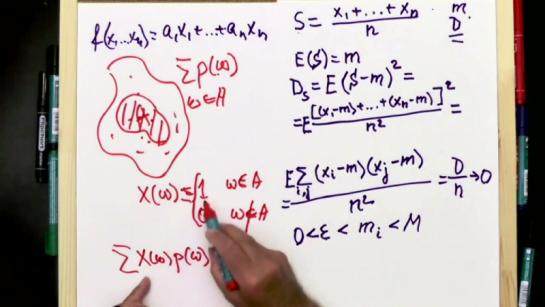 f(x₁...xₙ) = a₁x₁+...+aₙxₙ
∑ p(ω)
ω∈A
X(ω) = { 1 ω∈A
0 ω∉A
∑ X(ω) p(ω)
S = (x₁+...+xₙ)/n m
D
E(S) = m
D_S = E(S-m)² =
= E [(x₁-m)+...+(xₙ-m)]²/n² =
= E ∑_{i,j} (x_i-m)(x_j-m)/n² = D/n → 0
0 < ε < m_i < M